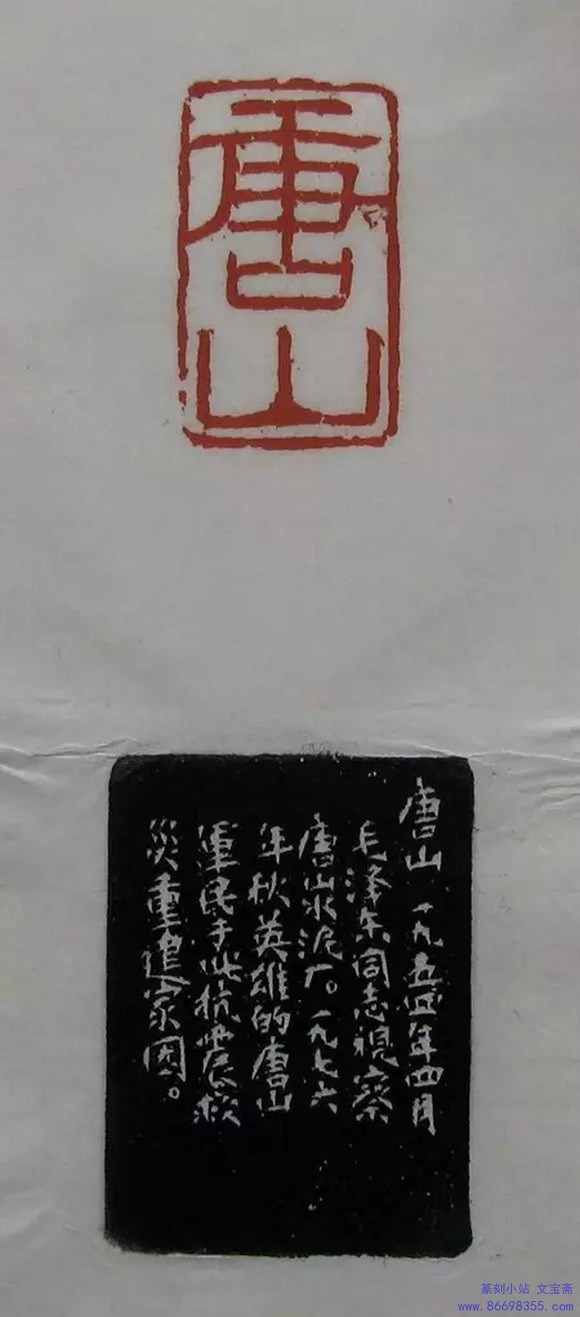 唐山
唐山 一九五四年四月
毛泽东同志视察
唐山水泥厂。一九七六
年秋英雄的唐山
军民于此抗震救
災重建家园。
篆刻小站 文宝斋
www.86698355.com